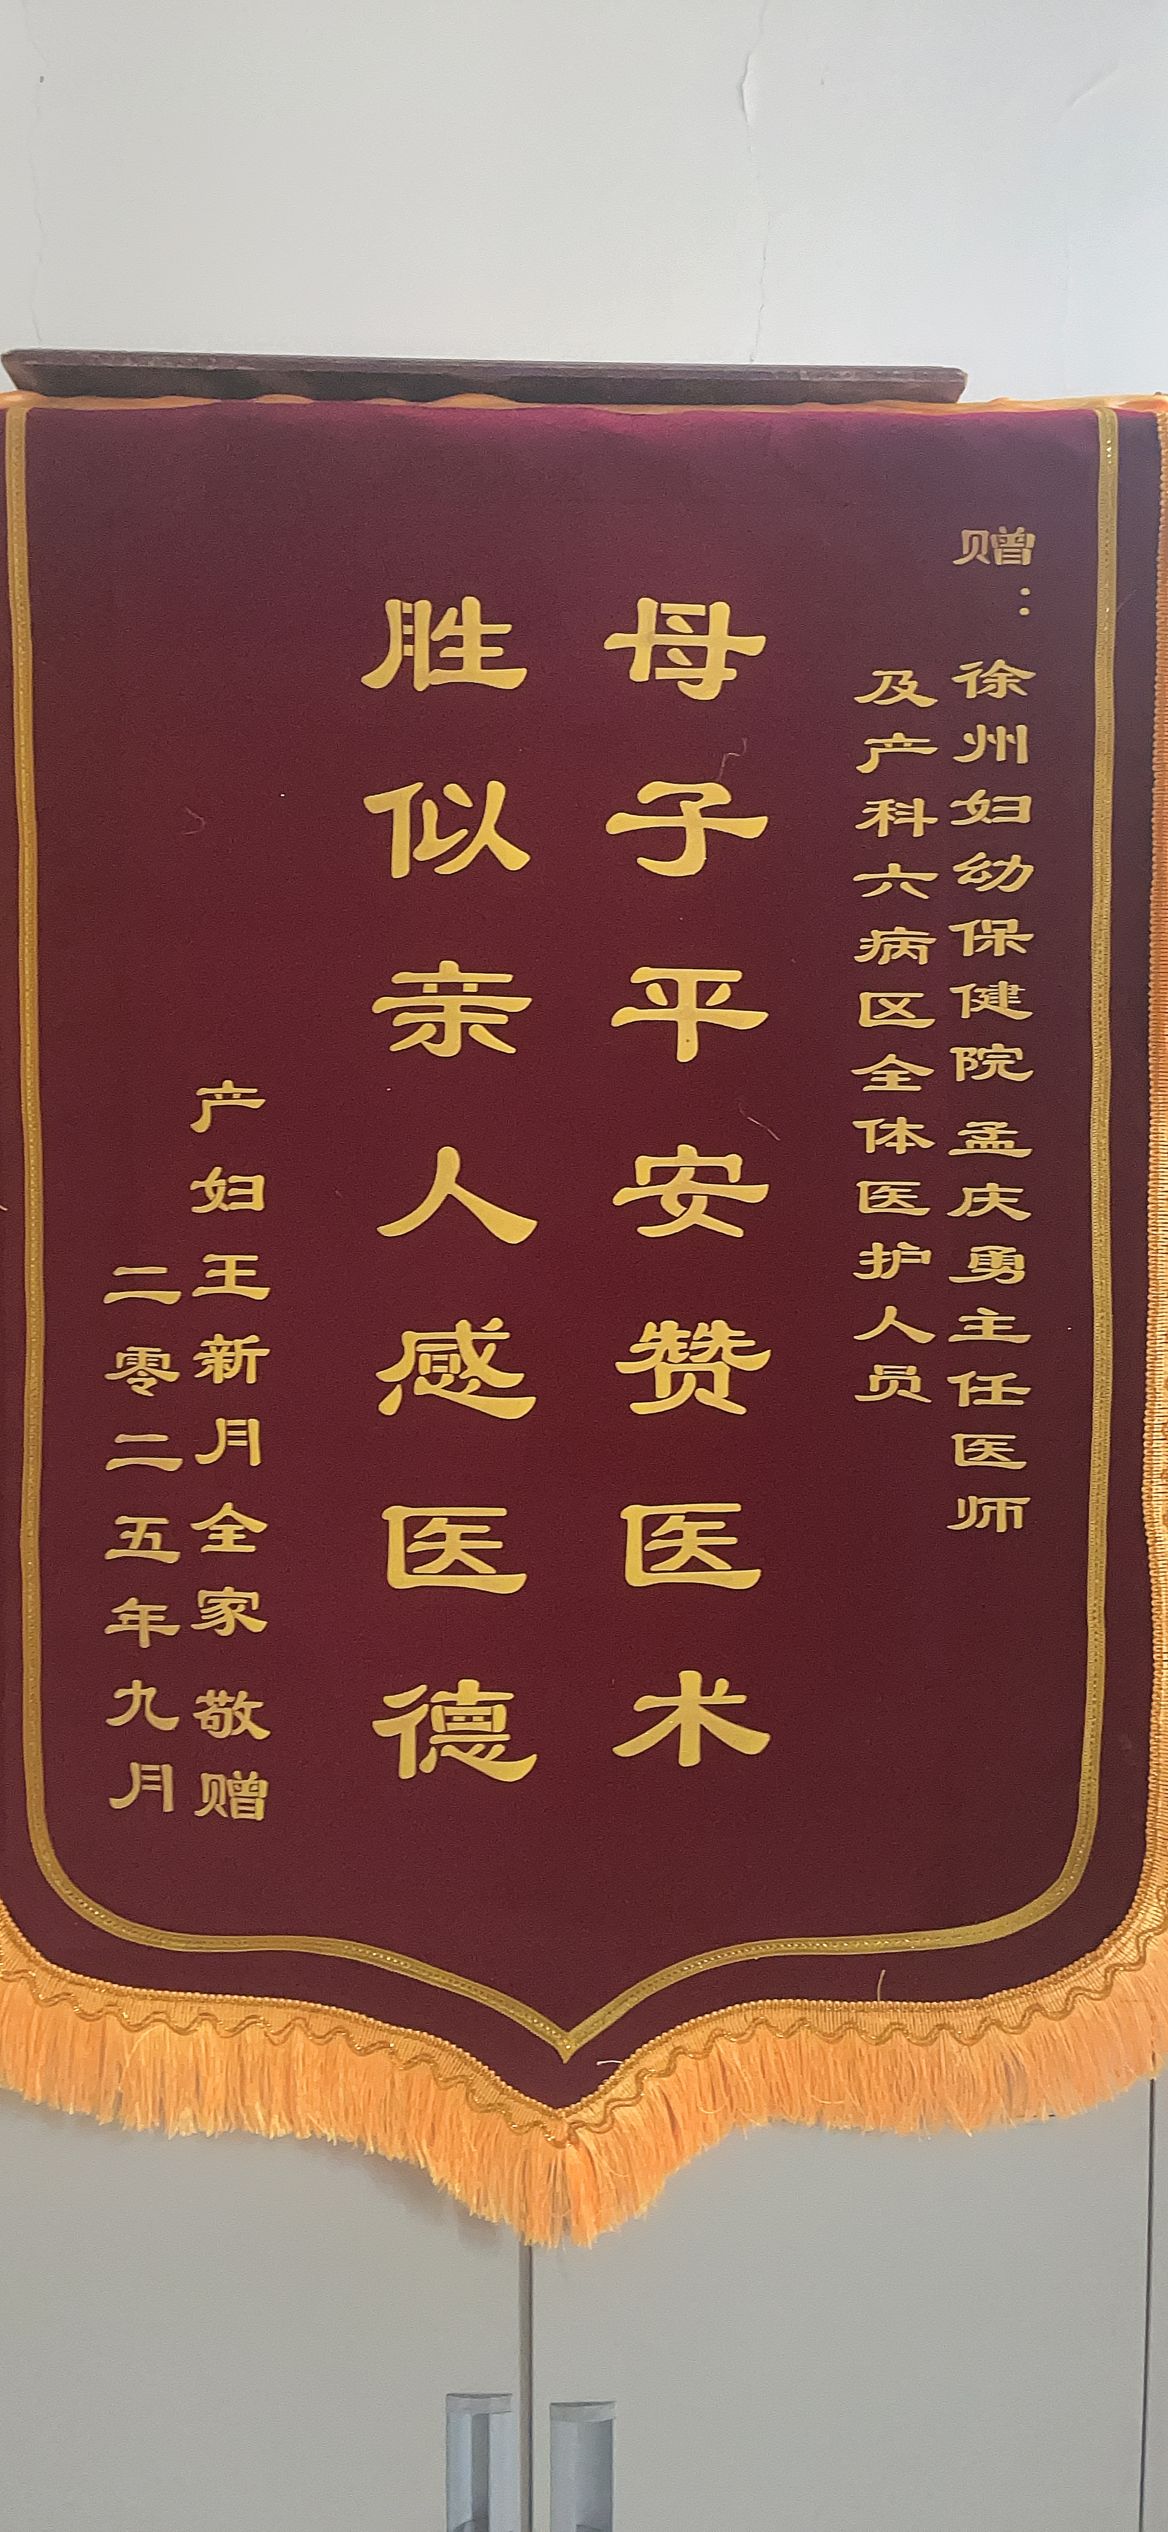 赠：徐州妇幼保健院孟庆勇主任医师
及产科六病区全体医护人员
母子平安赞医术
胜似亲人感医德
产妇王新月全家敬赠
二零二五年九月